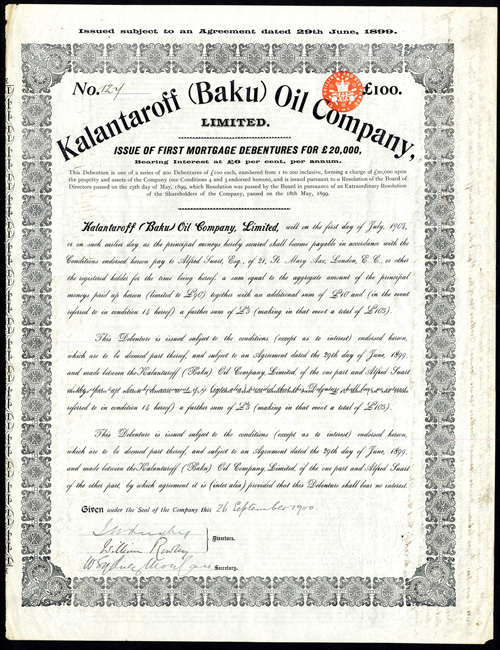 Issued subject to an Agreement dated 29th June, 1899.
No. 124
£100.
Kalantaroff (Baku) Oil Company,
LIMITED.
ISSUE OF FIRST MORTGAGE DEBENTURES FOR £20,000,
Bearing Interest at £6 per cent. per annum.
This Debenture is one of a series of 200 Debentures of £100 each, numbered from 1 to 200 inclusive, forming a charge of £20,000 upon
the property and assets of the Company (see Conditions 4 and 5 endorsed hereon), and is issued pursuant to a Resolution of the Board of
Directors passed on the 25th day of May, 1899, which Resolution was passed by the Board in pursuance of an Extraordinary Resolution
of the Shareholders of the Company, passed on the 18th May, 1899.
Kalantaroff (Baku) Oil Company, Limited, will on the first day of July, 1904,
or on such earlier day as the principal moneys hereby secured shall become payable in accordance with the
Conditions endorsed hereon pay to Alfred Suart, Esq., of 21, St. Mary Axe, London, E.C., or other
the registered holder for the time being hereof, a sum equal to the aggregate amount of the principal
moneys paid up hereon (limited to £90) together with an additional sum of £10 and (in the event
referred to in condition 14 hereof) a further sum of £5 (making in that event a total of £105).
This Debenture is issued subject to the conditions (except as to interest) endorsed hereon,
which are to be deemed part thereof, and subject to an Agreement dated the 29th day of June, 1899
and made between the Kalantaroff (Baku) Oil Company Limited, of the one part and Alfred Suart
referred to in condition 14 hereof) a further sum of £5 (making in that event a total of £105).
This Debenture is issued subject to the conditions (except as to interest) endorsed hereon,
which are to be deemed part thereof, and subject to an Agreement dated the 29th day of June, 1899
and made between the Kalantaroff (Baku) Oil Company, Limited, of the one part and Alfred Suart
of the other part, by which agreement it is (inter alia) provided that this Debenture shall bear no interest.
Given under the Seal of the Company this 26 September 1900
William
Directors.
Secretary.